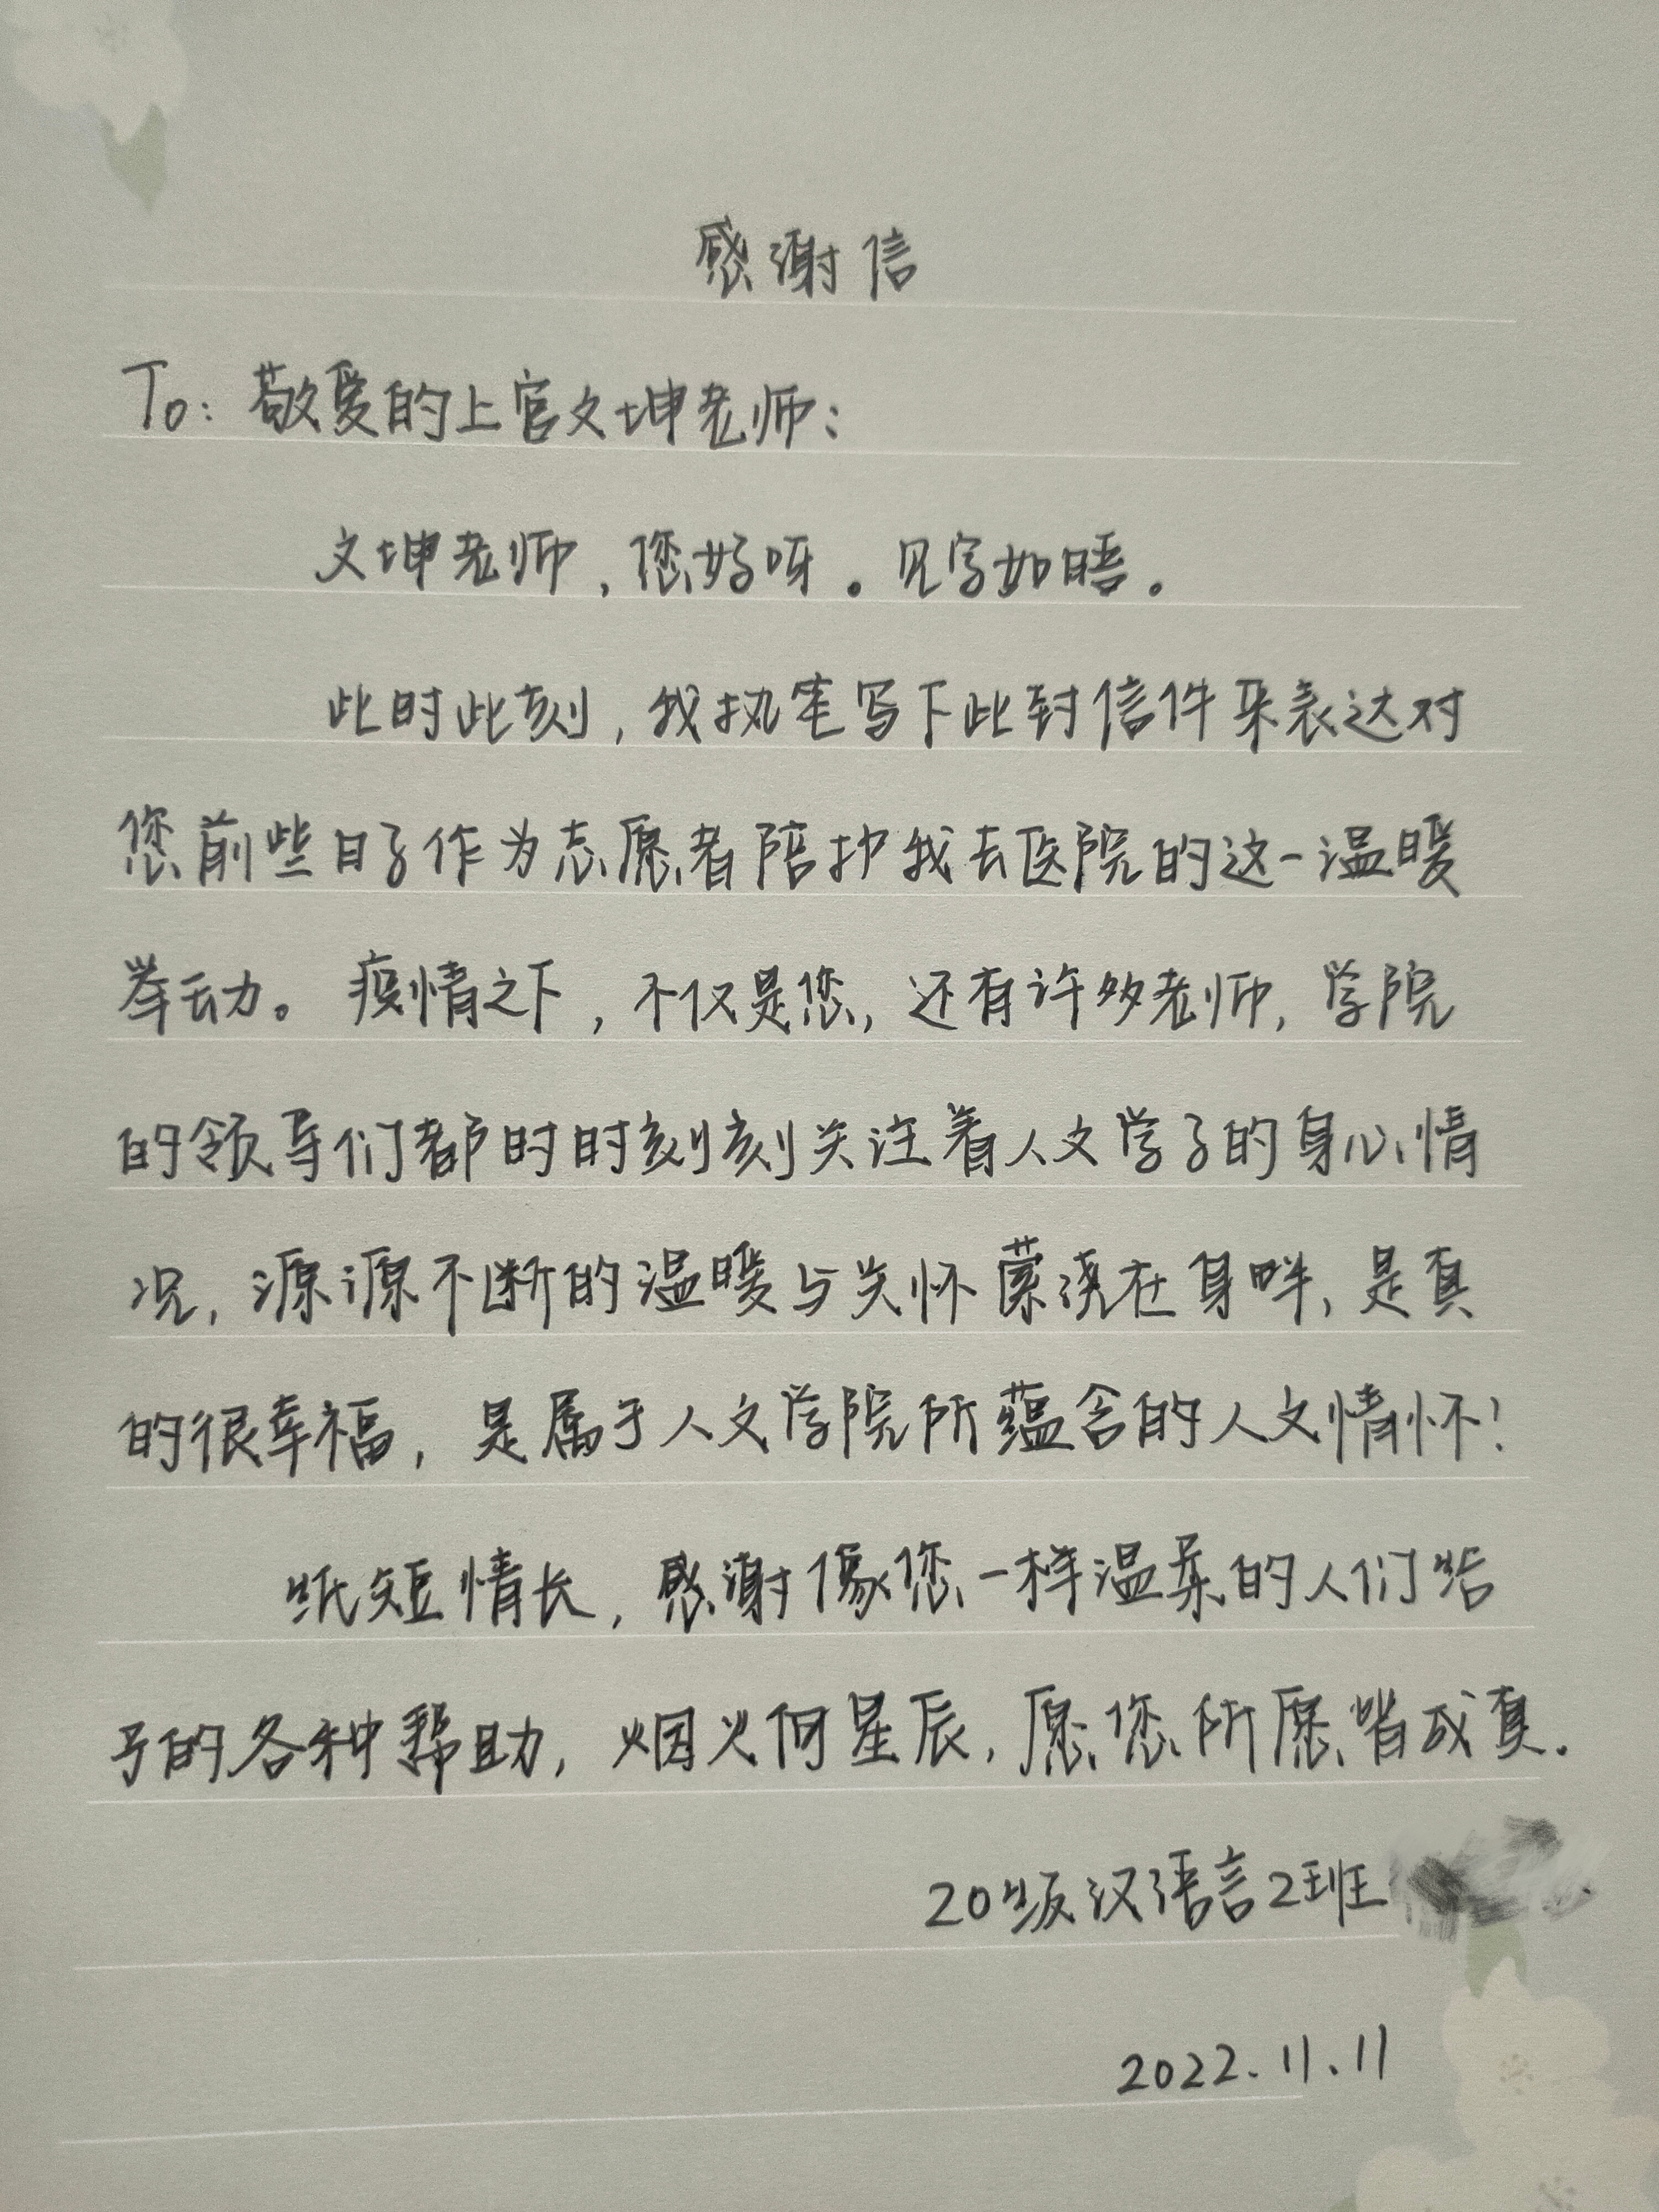 感谢信
To：敬爱的上官文坤老师：
文坤老师，您好呀。见字如晤。
此时此刻，我执笔写下此封信件来表达对
您前些日子作为志愿者陪护我去医院的这一温暖
举动。疫情之下，不仅是您，还有许多老师，学院
的领导们都时时刻刻关注着人文学子的身心情
况，源源不断的温暖与关怀萦浇在身畔，是真
的很幸福，是属于人文学院所蕴含的人文情怀！
纸短情长，感谢像您一样温柔的人们给
予的各种帮助，烟火向星辰，愿您所愿皆成真.
20级汉语言2班
2022.11.11